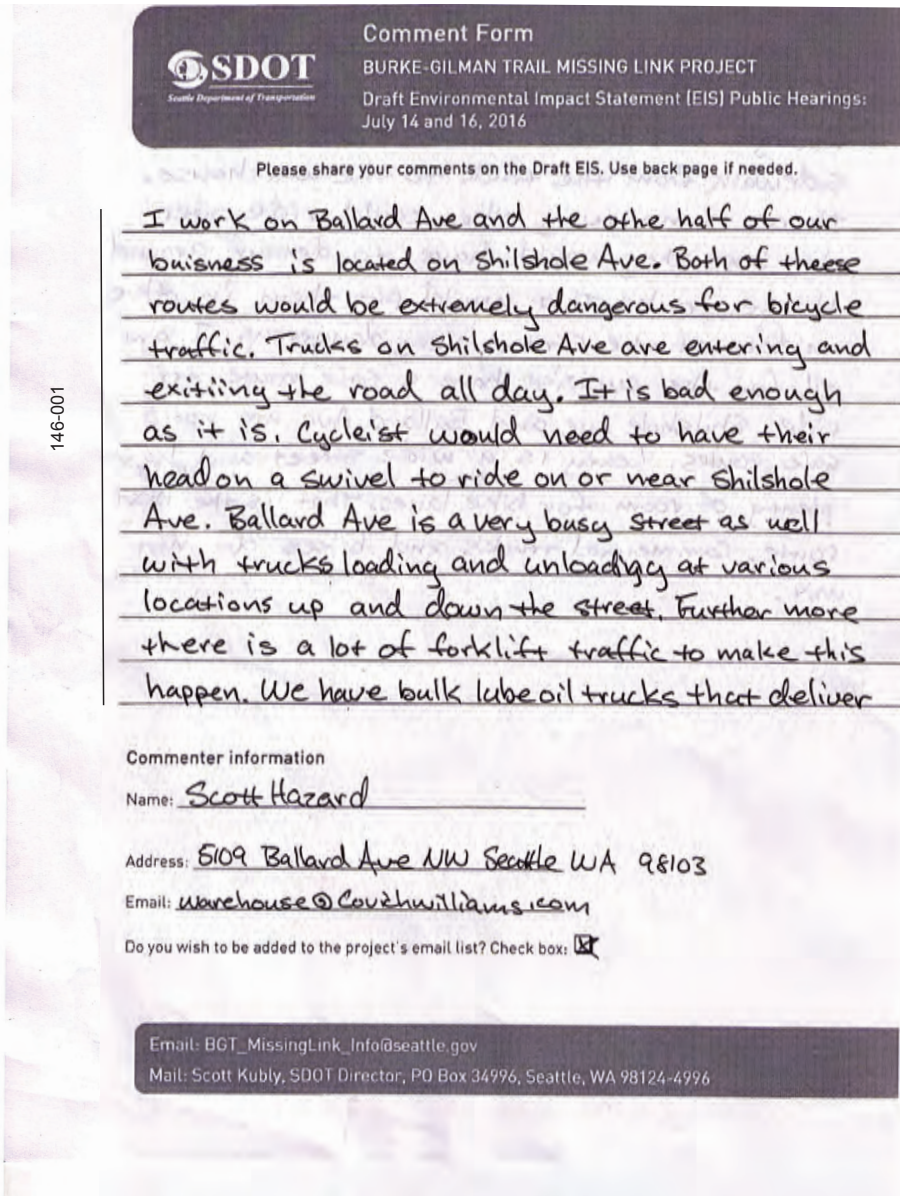 SDOT
Seattle Department of Transportation
Comment Form
BURKE-GILMAN TRAIL MISSING LINK PROJECT
Draft Environmental Impact Statement (EIS) Public Hearings:
July 14 and 16, 2016
Please share your comments on the Draft EIS. Use back page if needed.
146-001
I work on Ballard Ave and the othe half of our
buisness is located on Shilshole Ave. Both of theese
routes would be extremely dangerous for bicycle
traffic. Trucks on Shilshole Ave are entering and
exitiing the road all day. It is bad enough
as it is. Cycleist would need to have their
head on a swivel to ride on or near Shilshole
Ave. Ballard Ave is a very busy street as well
with trucks loading and unloadigg at various
locations up and down the street. Further more
there is a lot of forklift traffic to make this
happen. We have bulk lube oil trucks that deliver
Commenter information
Name: Scott Hazard
Address: 5109 Ballard Ave NW Seattle WA 98103
Email: warehouse@Couchwilliams.com
Do you wish to be added to the project's email list? Check box:
Email: BGT_MissingLink_Info@seattle.gov
Mail: Scott Kubly, SDOT Director, PO Box 34996, Seattle, WA 98124-4996